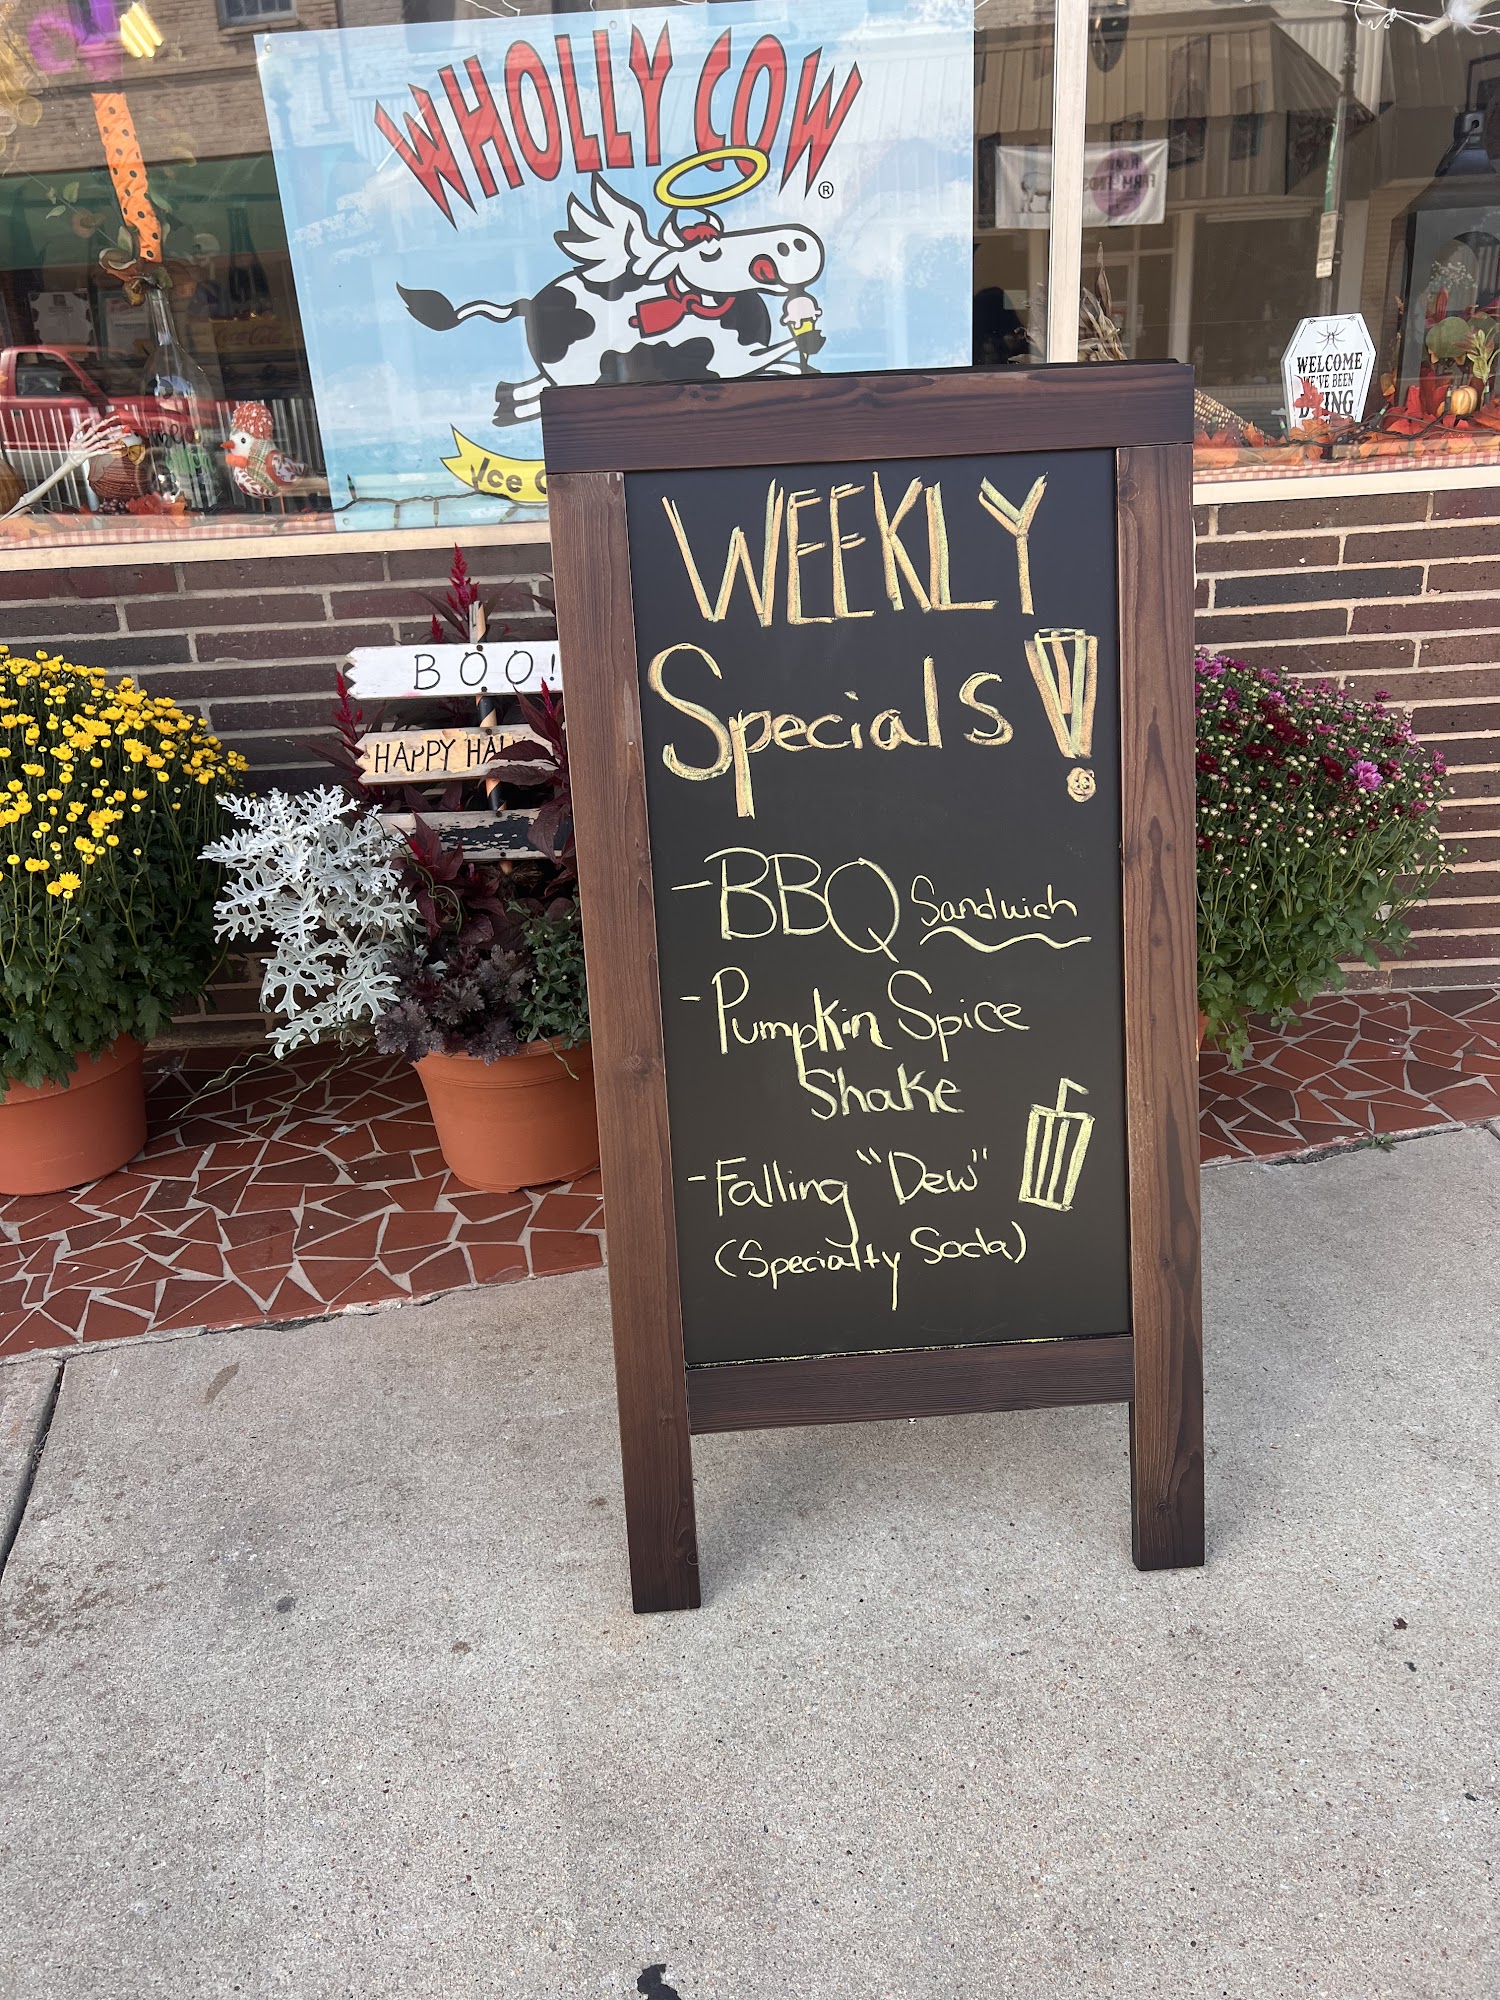 WHOLLY COW
®
Ice C
WELCOME
WE'VE BEEN
DYING
BOO!
HAPPY HAL
WEEKLY
Specials!
-BBQ Sandwich
-Pumpkin Spice
Shake
-Falling "Dew"
(Specialty Soda)